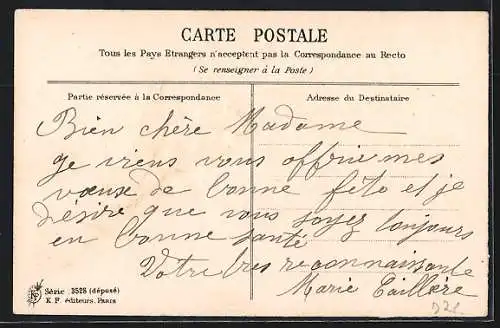 CARTE POSTALE
Tous les Pays Etrangers n'acceptent pas la Correspondance au Recto
(Se renseigner à la Poste)
Partie réservée à la Correspondance
Adresse du Destinataire
Bien chère Madame
je viens vous offrir mes
vœux de bonne fête et je
désire que vous soyez toujours
en bonne santé
Votre très reconnaissante
Marie Taillère
Série 3528 (déposé)
K. F. éditeurs. Paris